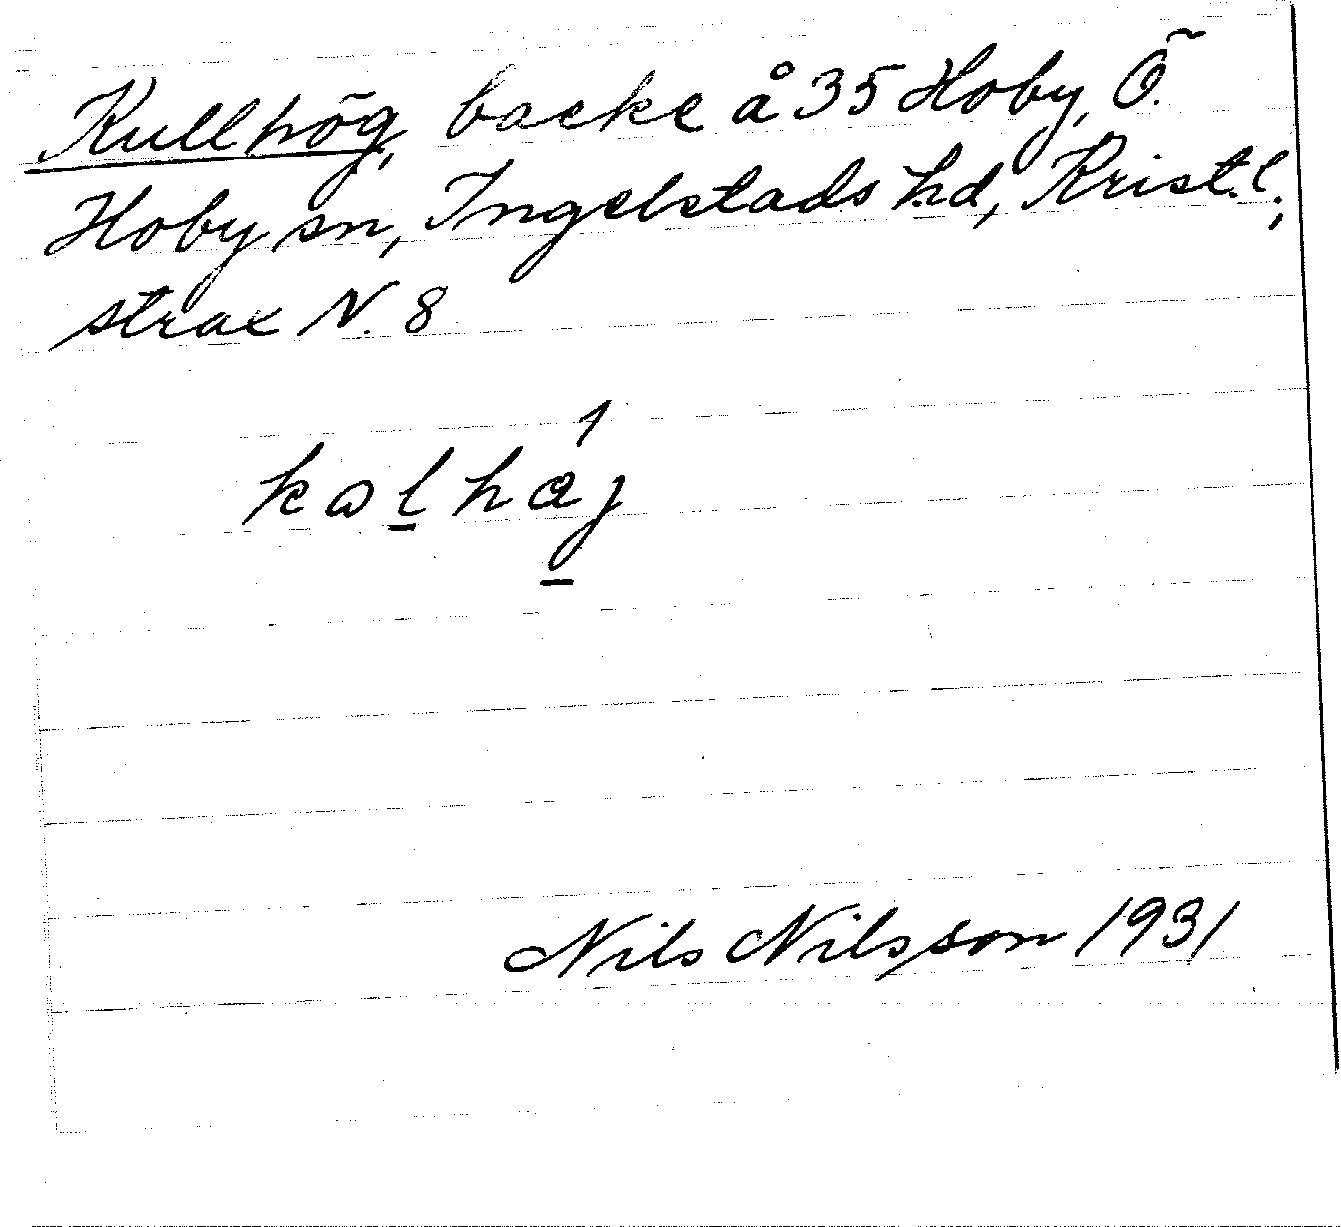 Kullhög, backe å 35 Hoby, Ö.
Hoby sn, Ingelstads hd, Krist. l;
strax N. 8
Nils Nilsson 1931